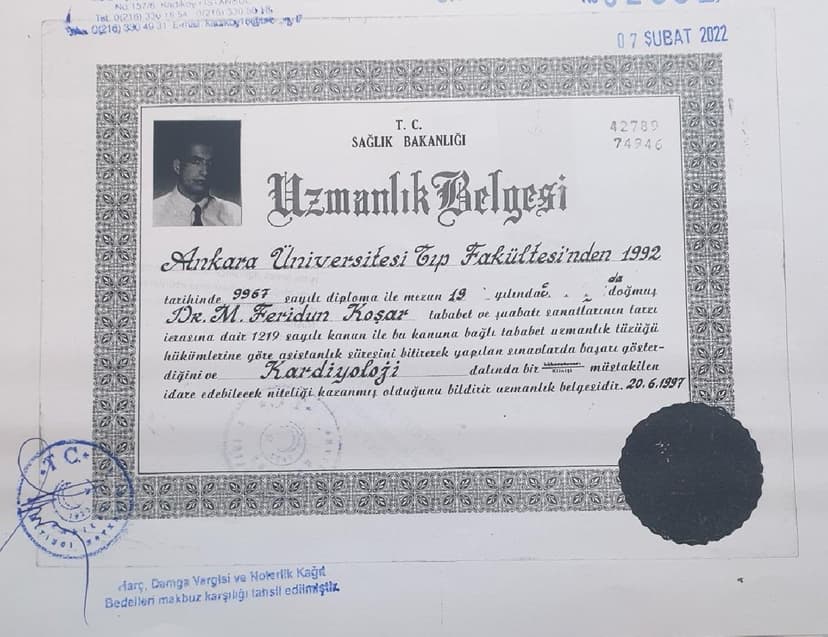 No 157/6 Kadıköy
Tel. 0(216) 330 18 54
0(216) 330 49 31 E-mail
07 ŞUBAT 2022
T. C.
SAĞLIK BAKANLIĞI
42789
74946
Uzmanlık Belgesi
Ankara Üniversitesi Tıp Fakültesi'nden 1992
tarihinde 9967 sayılı diploma ile mezun 19 yılında da doğmuş
Dr. M. Feridun Koşar tababet ve şuabatı sanatlarının tarzı
icrasına dair 1219 sayılı kanun ile bu kanuna bağlı tababet uzmanlık tüzüğü
hükümlerine göre asistanlık süresini bitirerek yapılan sınavlarda başarı göster-
diğini ve Kardiyoloji dalında bir müstakilen
idare edebilecek niteliği kazanmış olduğunu bildirir uzmanlık belgesidir. 20.6.1997
T.C.
Harç, Damga Vergisi ve Noterlik Kağıt
Bedelleri makbuz karşılığı tahsil edilmiştir.